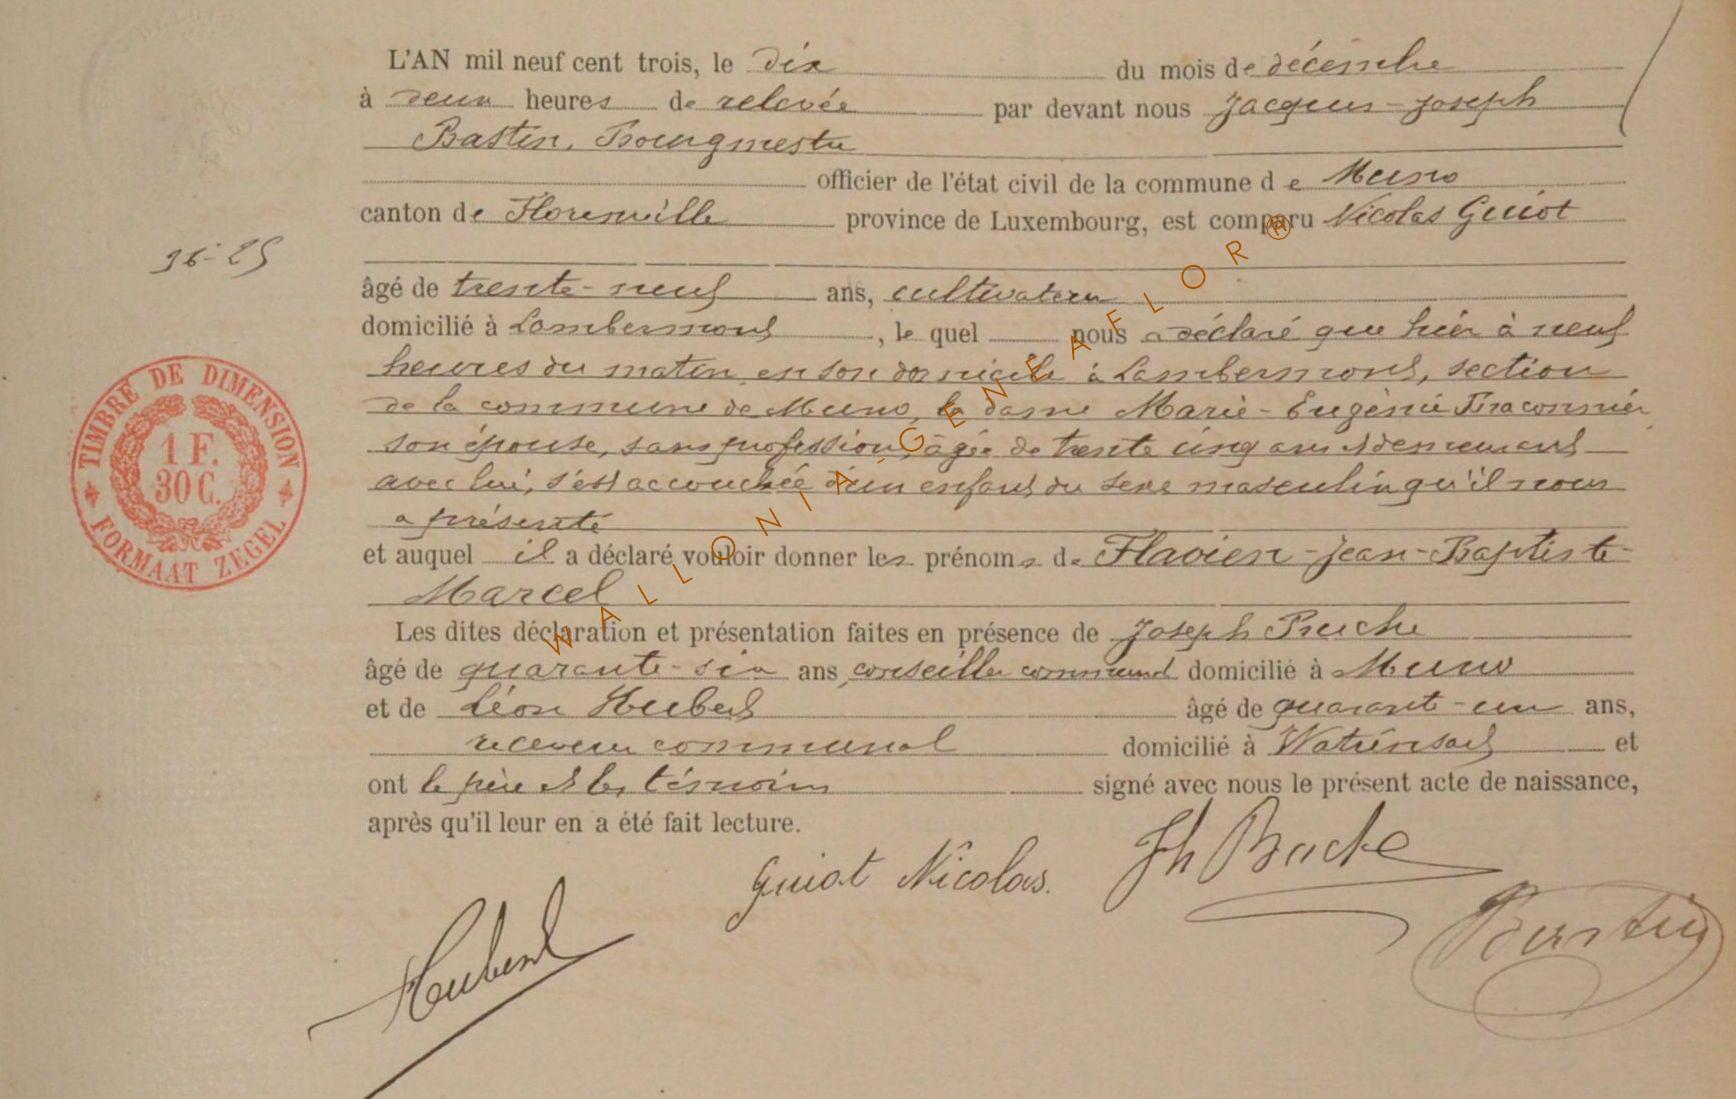 L'AN mil neuf cent trois, le dix du mois de décembre
à deux heures de relevée par devant nous Jacques-Joseph
Bastin, Bourgmestre
officier de l'état civil de la commune de Muno
canton de Florenville province de Luxembourg, est comparu Nicolas Guiot
36-25
âgé de trente-neuf ans, cultivateur
domicilié à Lambermont, le quel nous a déclaré que hier à neuf
heures du matin, en son domicile à Lambermont, section
de la commune de Muno, la dame Marie-Eugénie Braconnier
son épouse, sans profession, âgée de trente cinq ans et demeurant
avec lui, s'est accouchée d'un enfant du sexe masculin qu'il nous
a présenté
et auquel il a déclaré vouloir donner les prénoms de Flavien-Jean-Baptiste-
Marcel
Les dites déclaration et présentation faites en présence de Joseph
âgé de quarante-six ans, conseiller communal domicilié à Muno
et de Léon Hubert âgé de quarante-un ans,
receveur communal domicilié à Watrinsart et
ont le père et les témoins signé avec nous le présent acte de naissance,
après qu'il leur en a été fait lecture.
Guiot Nicolas.
Jh
Hubert
Bastin
TIMBRE DE DIMENSION
1 F.
30 C.
FORMAAT ZEGEL
WALLONIA-GENEAFLOR®